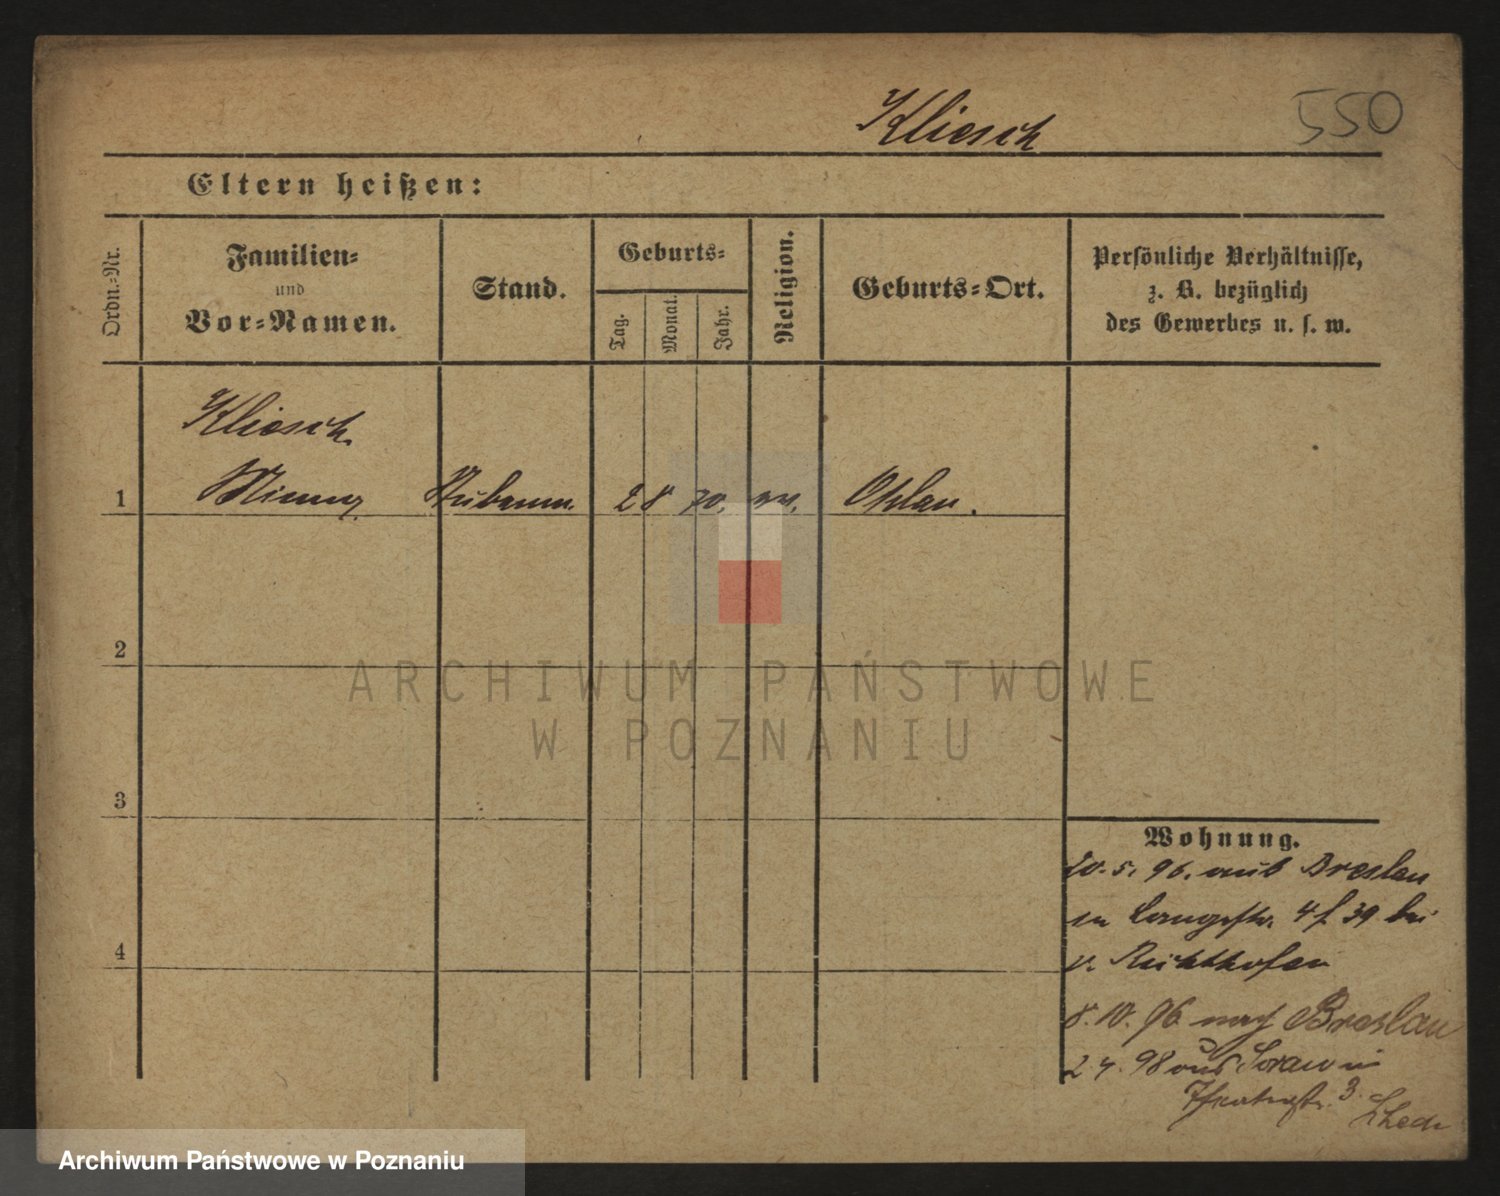 Kliesch
550
Eltern heißen:
Ordn.-Nr.
Familien-
und
Vor-Namen.
Stand.
Geburts-
Tag.
Monat.
Jahr.
Religion.
Geburts-Ort.
Persönliche Verhältnisse,
z. B. bezüglich
des Gewerbes u. s. w.
Kliesch.
1 2 8 70. ev. Ohlau.
2
ARCHIWUM PAŃSTWOWE
W POZNANIU
3
Wohnung.
20. 5. 96. aus Breslau
in Langestr. 4 f 39 bei
v. Richthofen
4
8. 10. 96 nach Breslau
2 4. 98 aus Sorau in
3.
Archiwum Państwowe w Poznaniu